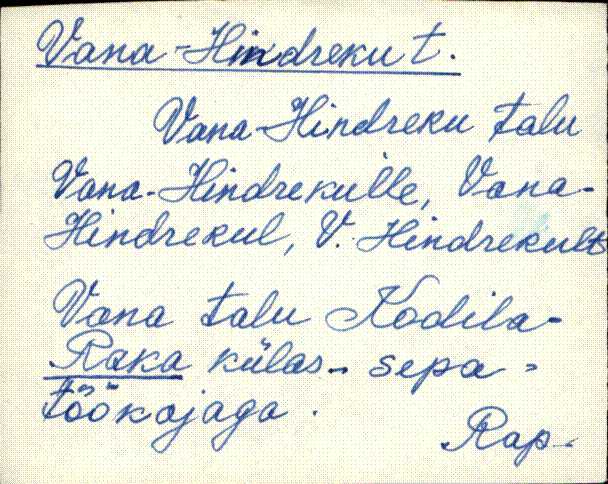 Vana-Hindreku t.
Vana-Hindreku talu
Vana-Hindrekulle, Vana-
Hindrekul, V. Hindrekult
Vana talu Kodila-
Raka külas - sepa-
töökojaga.
Rap.